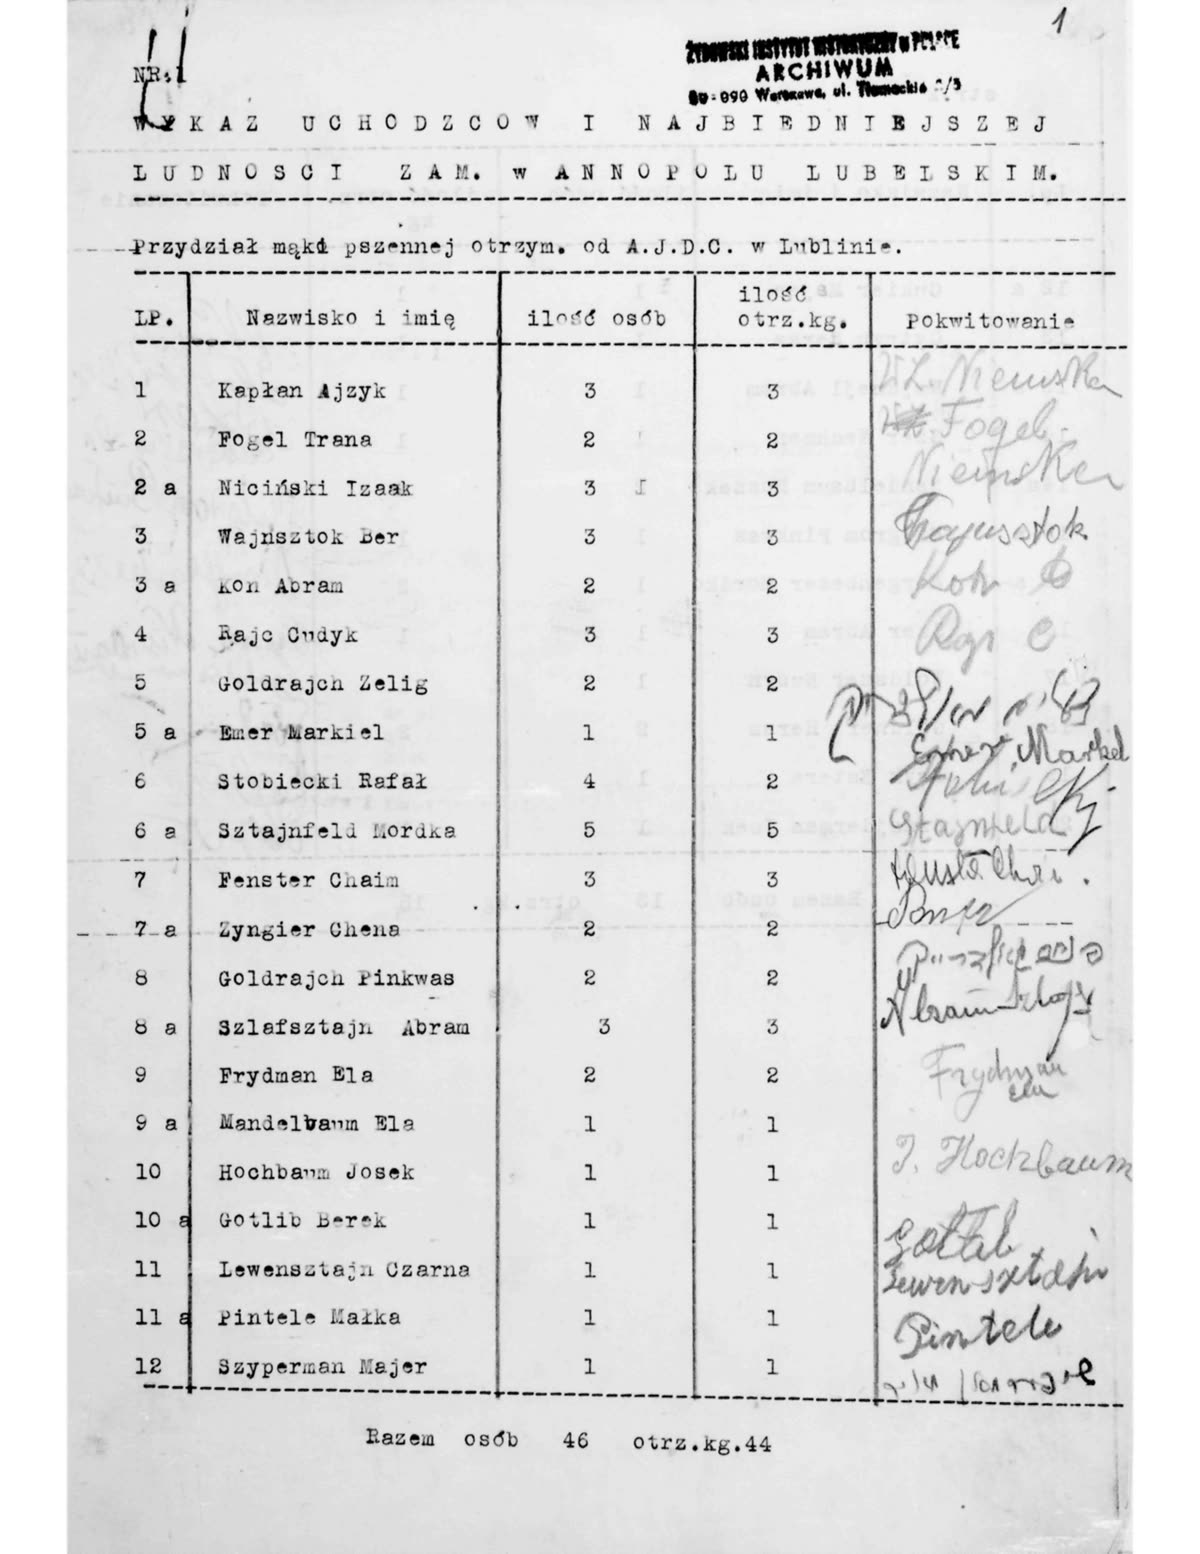 1
ŻYDOWSKI INSTYTUT HISTORYCZNY w POLSCE
ARCHIWUM
00-090 Warszawa, ul. Tłomackie 3/5
NR.1
WYKAZ UCHODZCOW I NAJBIEDNIEJSZEJ
LUDNOSCI ZAM. w ANNOPOLU LUBELSKIM.
Przydział mąki pszennej otrzym. od A.J.D.C. w Lublinie.
LP. Nazwisko i imię ilość osób ilość otrz.kg. Pokwitowanie
1 Kapłan Ajzyk 3 3
2 Fogel Trana 2 2 Fogel
2 a Niciński Izaak 3 3
3 Wajnsztok Ber 3 3
3 a Kon Abram 2 2 Kon
4 Rajc Cudyk 3 3
5 Goldrajch Zelig 2 2
5 a Emer Markiel 1 1
6 Stobiecki Rafał 4 2
6 a Sztajnfeld Mordka 5 5
7 Fenster Chaim 3 3
7 a Zyngier Chena 2 2
8 Goldrajch Pinkwas 2 2
8 a Szlafsztajn Abram 3 3
9 Frydman Ela 2 2 Frydman Ela
9 a Mandelbaum Ela 1 1
10 Hochbaum Josek 1 1 J. Hochbaum
10 a Gotlib Berek 1 1
11 Lewensztajn Czarna 1 1
11 a Pintele Małka 1 1 Pintele
12 Szyperman Majer 1 1
Razem osób 46 otrz.kg.44